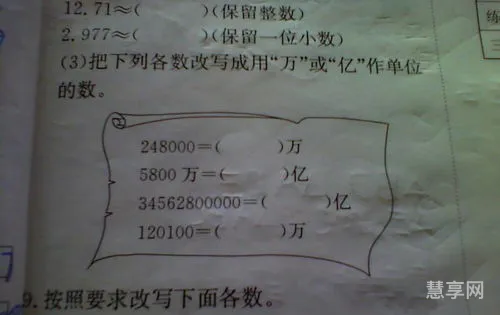 12.71≈(  )(保留整数)
2.977≈(  )(保留一位小数)
(3)把下列各数改写成用“万”或“亿”作单位
的数。
248000=(  )万
5800万=(  )亿
34562800000=(  )亿
120100=(  )万
9.按照要求改写下面各数。
练
慧享网